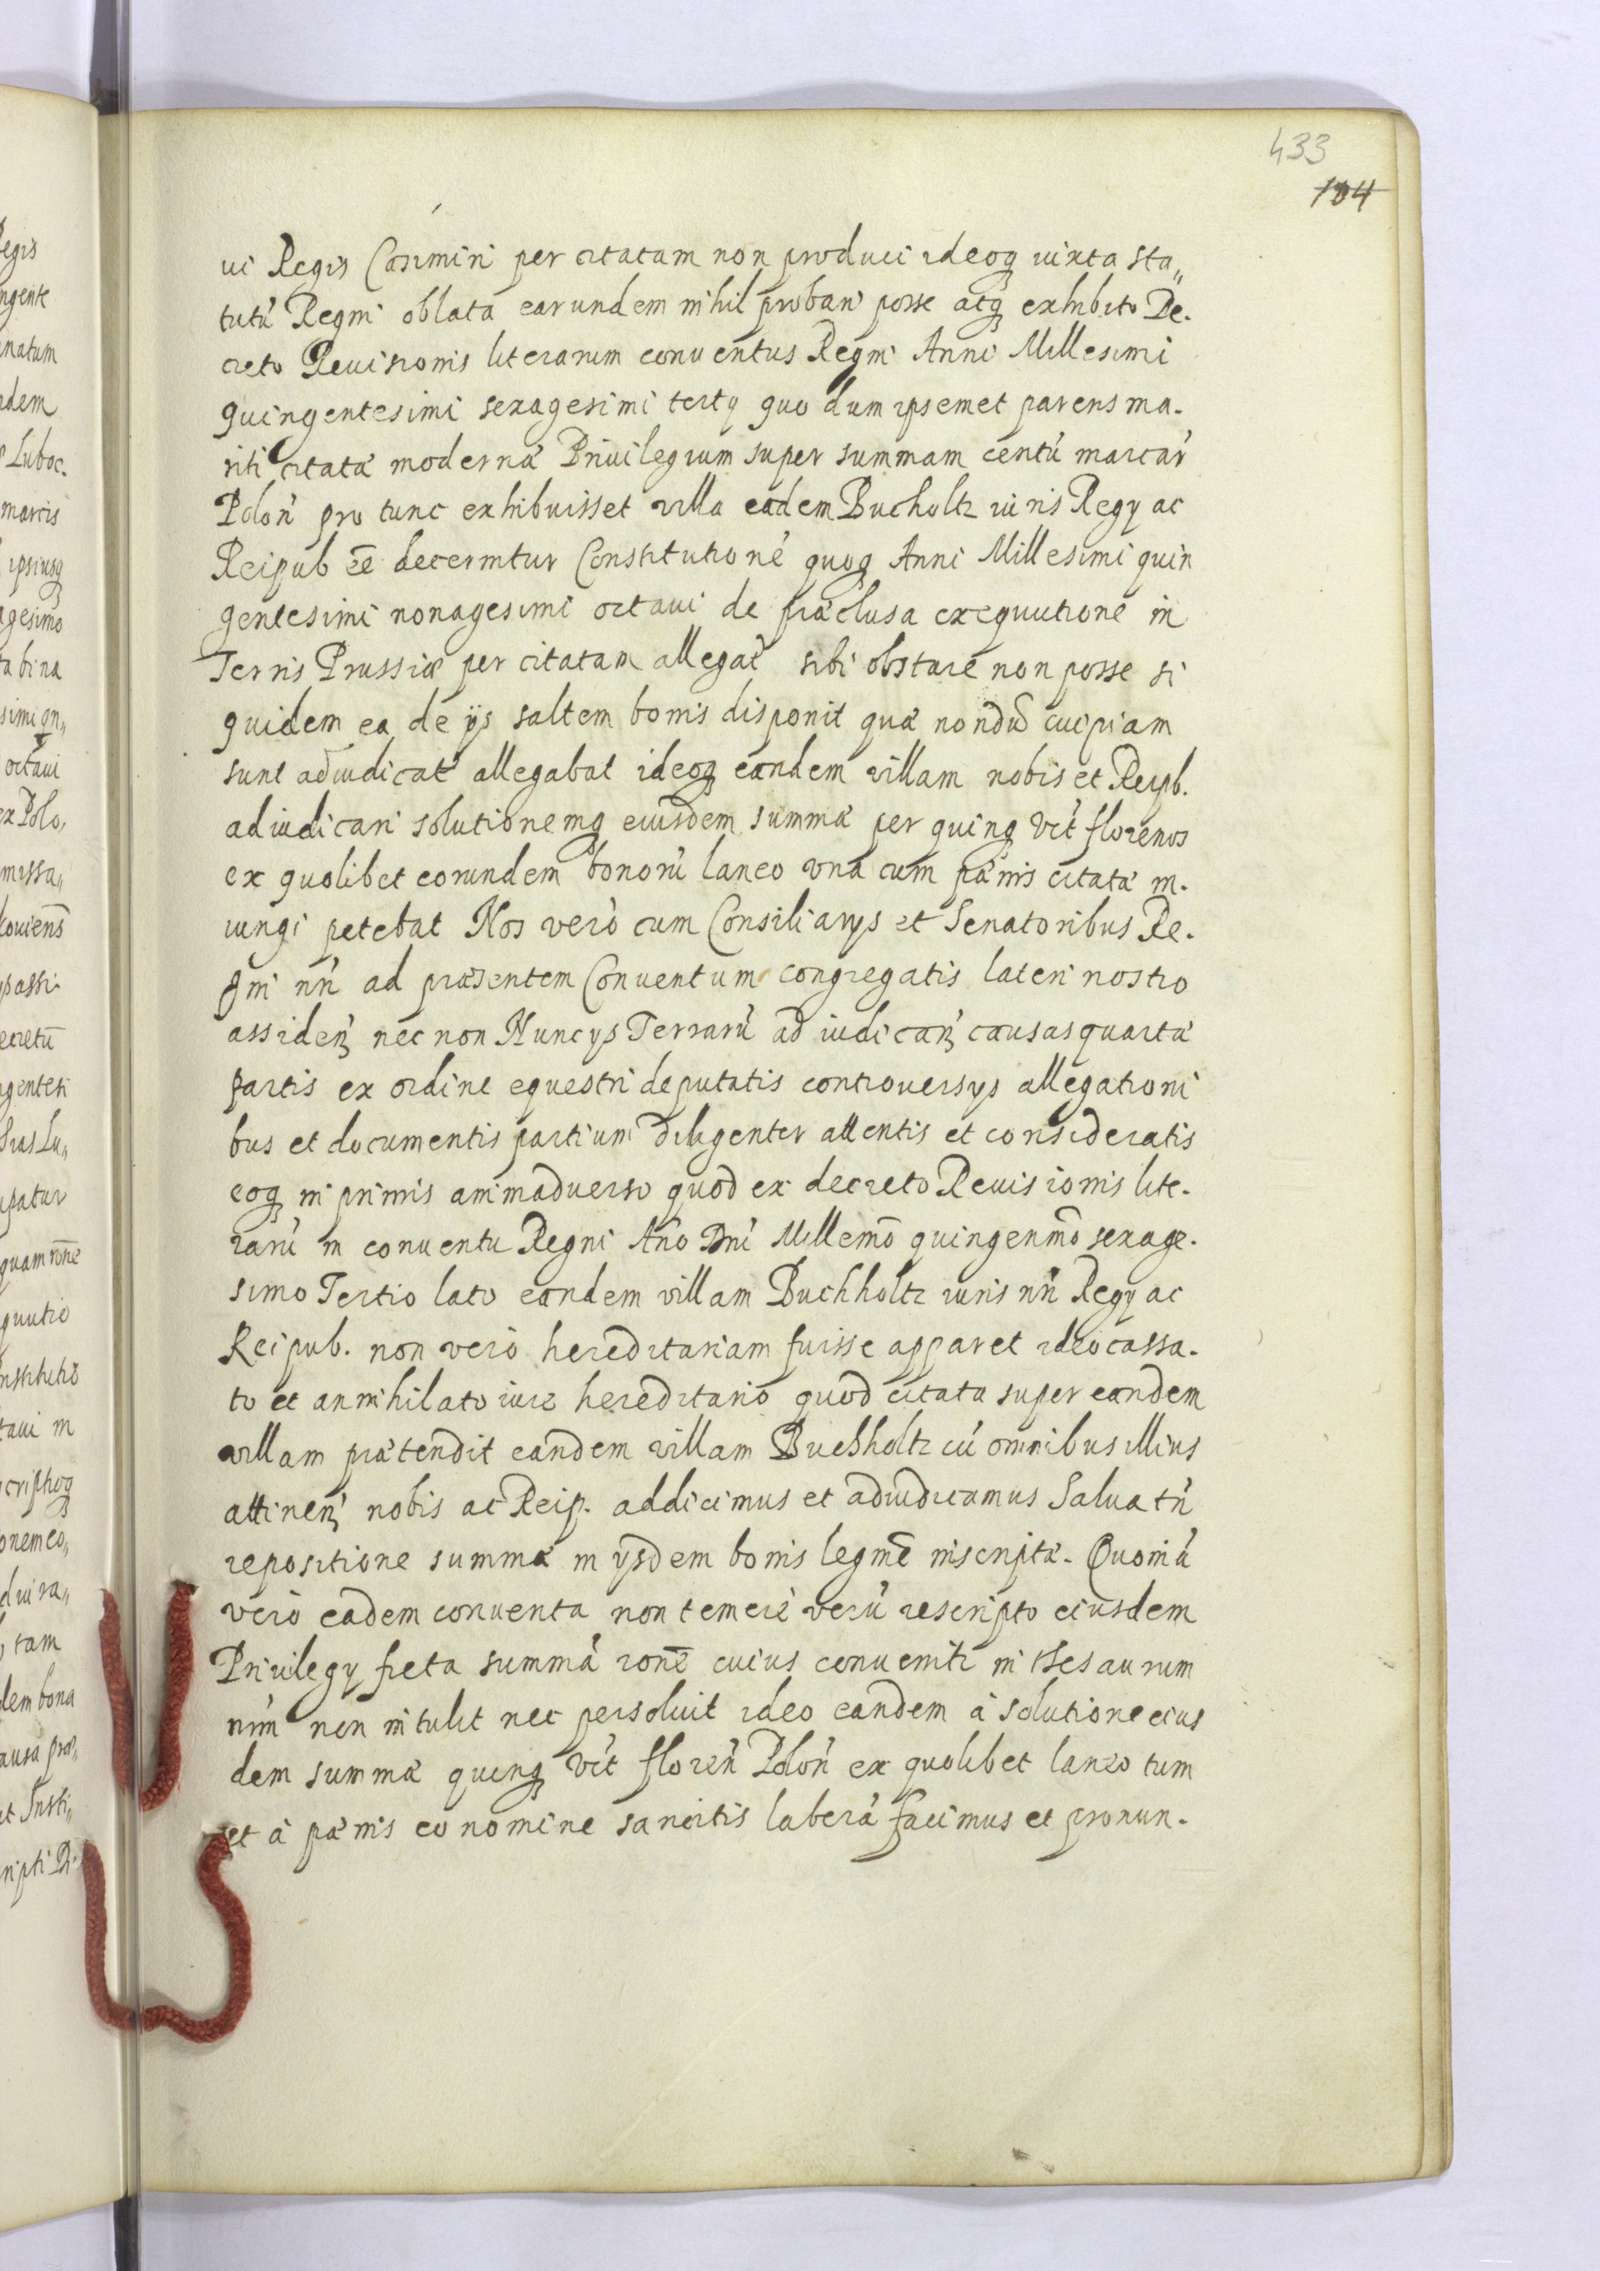 433
104
ui Regis Casimiri per citatam non produci ideoq iuxta sta„
tutū Regni oblata earundem nihil probari posse atq exhibito De-
creto Reuisionis literarum conuentus Regni Anni Millesimi
quingentesimi sexagesimi tertij quo dum ipsemet parens ma-
riti citatæ modernæ Priuilegium super summam centū marcar̄
Polon̄ pro tunc exhibuisset villa eadem Bucholtz iuris Regij ac
Reipub eē decernitur Constitutionē quoq Anni Millesimi quin
gentesimi nonagesimi octaui de præclusa exequutione in
Terris Prussiæ per citatam allegat̄ sibi obstare non posse si
quidem ea de ijs saltem bonis disponit quæ nondū cuipiam
sunt adiudicat̄ allegabat ideoq eandem villam nobis et Reipb.
adiudicari solutionemq eiusdem summæ per quinq vit̄ florenos
ex quolibet eorundem bonorū laneo vna cum pænis citatæ in-
iungi petebat Nos verò cum Consiliarijs et Senatoribus Re-
gni nr̄i ad præsentem Conuentum congregatis lateri nostro
assiden̄ nec non Nuncijs Terrarū ad iudican̄ causas quartæ
partis ex ordine equestri deputatis controuersijs allegationi
bus et documentis partium diligenter attentis et consideratis
eoq in primis animaduerso quod ex decreto Reuisionis lite-
rarū in conuentu Regni Año Dnī Millemō quingenmō sexage-
simo Tertio lato eandem villam Buchholtz iuris nr̄i Regij ac
Reipub. non verò hereditariam fuisse apparet ideo cassa-
to et annihilato iure hereditario quod citata super eandem
villam prætendit eandem villam Buchholtz cū omnibus illius
attinen̄ nobis ac Reip. addicimus et adiudicamus Salua tn̄
repositione summæ in ijsdem bonis legmē inscriptæ. Quoniā
verò eadem conuenta non temerè verū rescripto eiusdem
Priuilegij freta summā ronē cuius conuenitr in thesaurum
nrm̄ non intulit nec persoluit ideo eandem à solutione eius
dem summæ quinq vit̄ floren̄ Polon̄ ex quolibet laneo tum
et à pænis eo nomine sancitis laberā facimus et pronun-